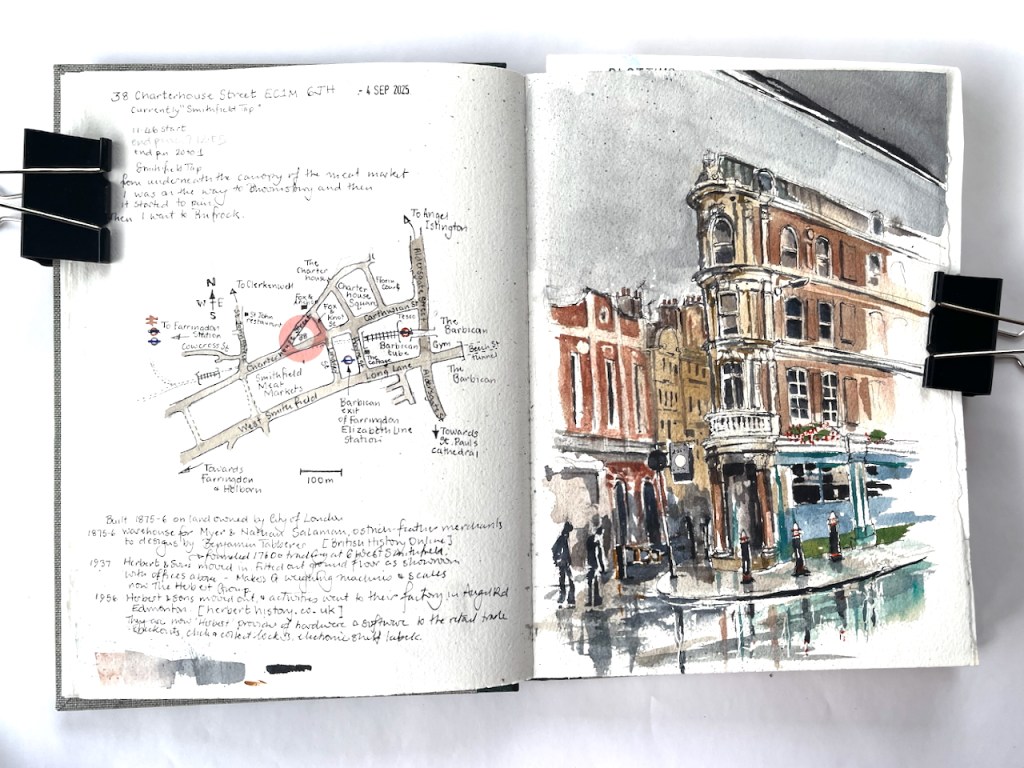 38 Charterhouse Street EC1M 6JH
- 4 SEP 2025
Currently "Smithfield Tap"
11:46 start
end pm 20:01
Smithfield Tap
from underneath the canopy of the meat market
I was on the way to Bloomsbury and then
it started to rain
then I went to Prufrock.
To Angel
Islington
The
Charter
house
To Clerkenwell
N
W E
S
St John
restaurant
To Farringdon
Station
Fox &
Anchor
Fox
& Knot
St
Charter
house
Square
Florin
Court
Carthusian St
Aldersgate Street
Tesco
The
Barbican
Barbican
tube
Gym
Beech St
tunnel
The
Barbican
The
Cottage
Charterhouse St
38
Smithfield
Meat
Markets
Long Lane
West Smithfield
Aldersgate
Barbican
exit
of Farringdon
Elizabeth Line
Station
Towards
St. Pauls
cathedral
Towards
Farringdon
& Holborn
100m
Built 1875-6 on land owned by City of London
1875-6 warehouse for Myer & Nathan Salaman, ostrich-feather merchants
to designs by Benjamin Tabberer [British History Online]
1937 Herbert & Sons moved in. Fitted out ground floor as showroom
with offices above - Makers of weighing machines & scales
now The Herbert Group
Herbert & sons moved out, & activities went to their factory in
Edmonton. [herberthistory.co.uk]
They are now 'Herbert' providers of hardware & software to the retail trade
checkouts, click & collect lockers, electronic shelf labels